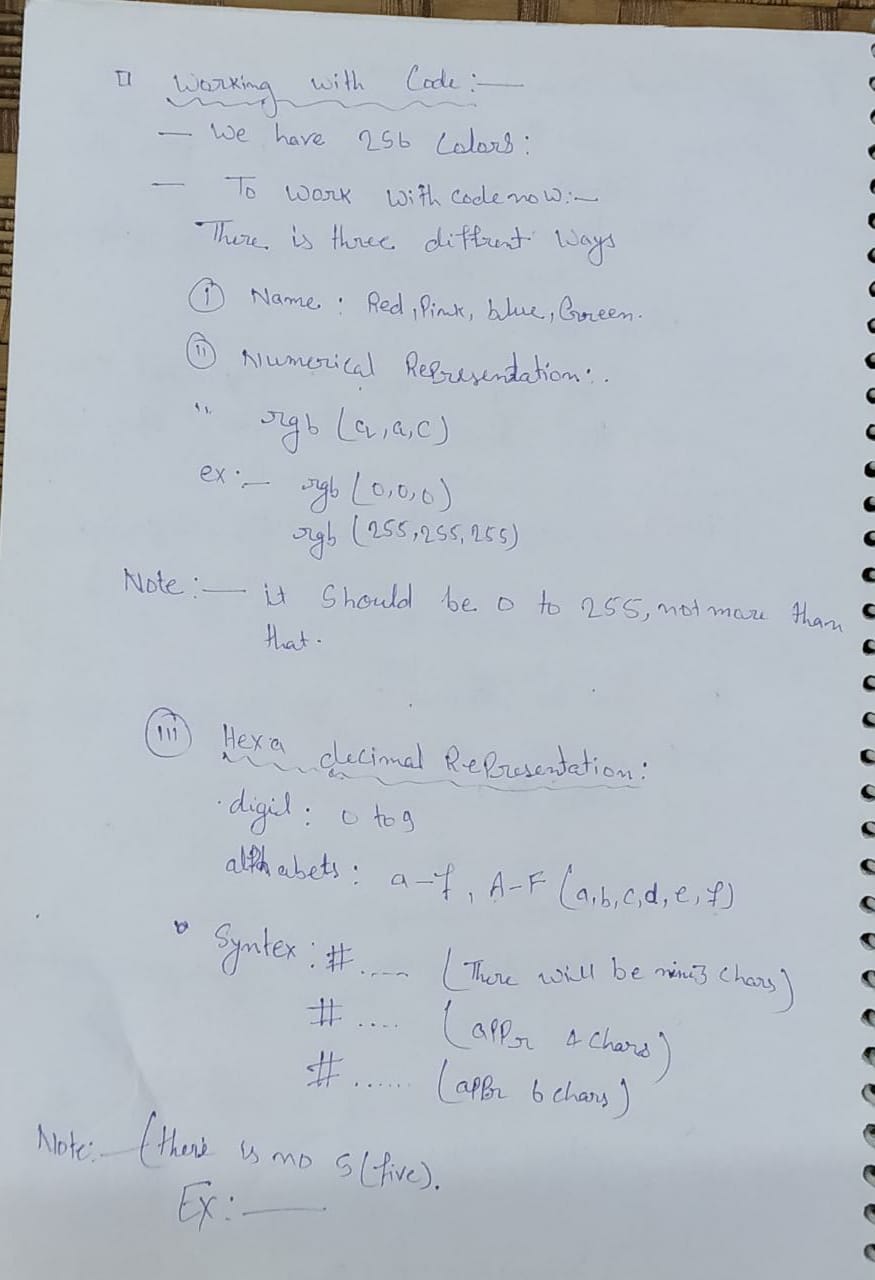 Working with Code:—
— We have 256 Colors:
— To work with code now:—
There is three diffrent ways
(i) Name : Red, Pink, blue, Green.
(ii) Numerical Representation:.
rgb (a,a,c)
ex:— rgb (0,0,0)
rgb (255,255,255)
Note:— it Should be 0 to 255, not more than
that.
(iii) Hexa decimal Representation:
digid: 0 to 9
alphabets: a-f, A-F (a,b,c,d,e,f)
Syntex: #..... (There will be mini3 chars)
# .... (appr 4 chars)
# ...... (appr 6 chars)
Note:— (there is no 5 (five).
Ex:——